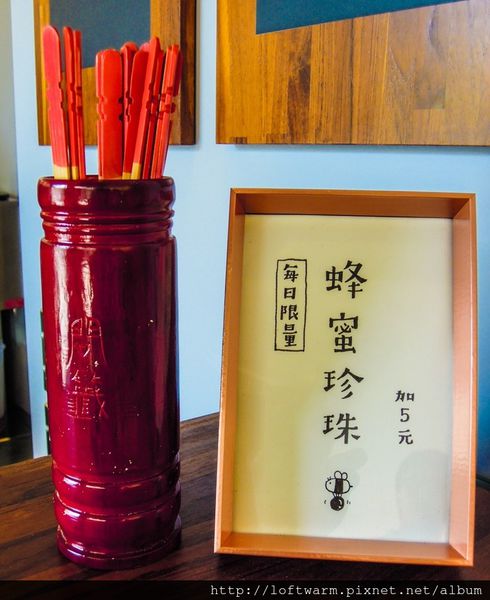 開籤
每日限量
蜂蜜珍珠
加5元
http://loftwarm.pixnet.net/album